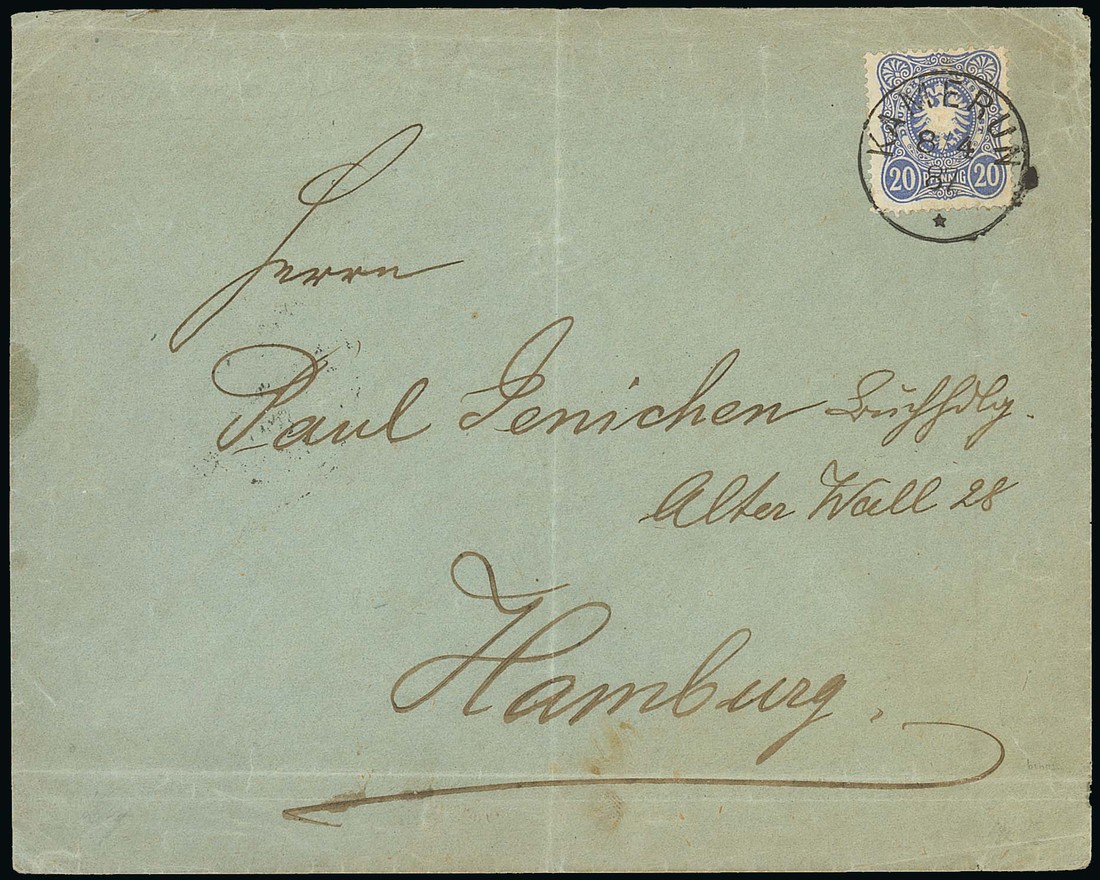 KAMERUN
8 4
87
20 PFENNIG 20
Herrn
Paul Jenichen Buchhdlg.
Alter Wall 28
Hamburg.